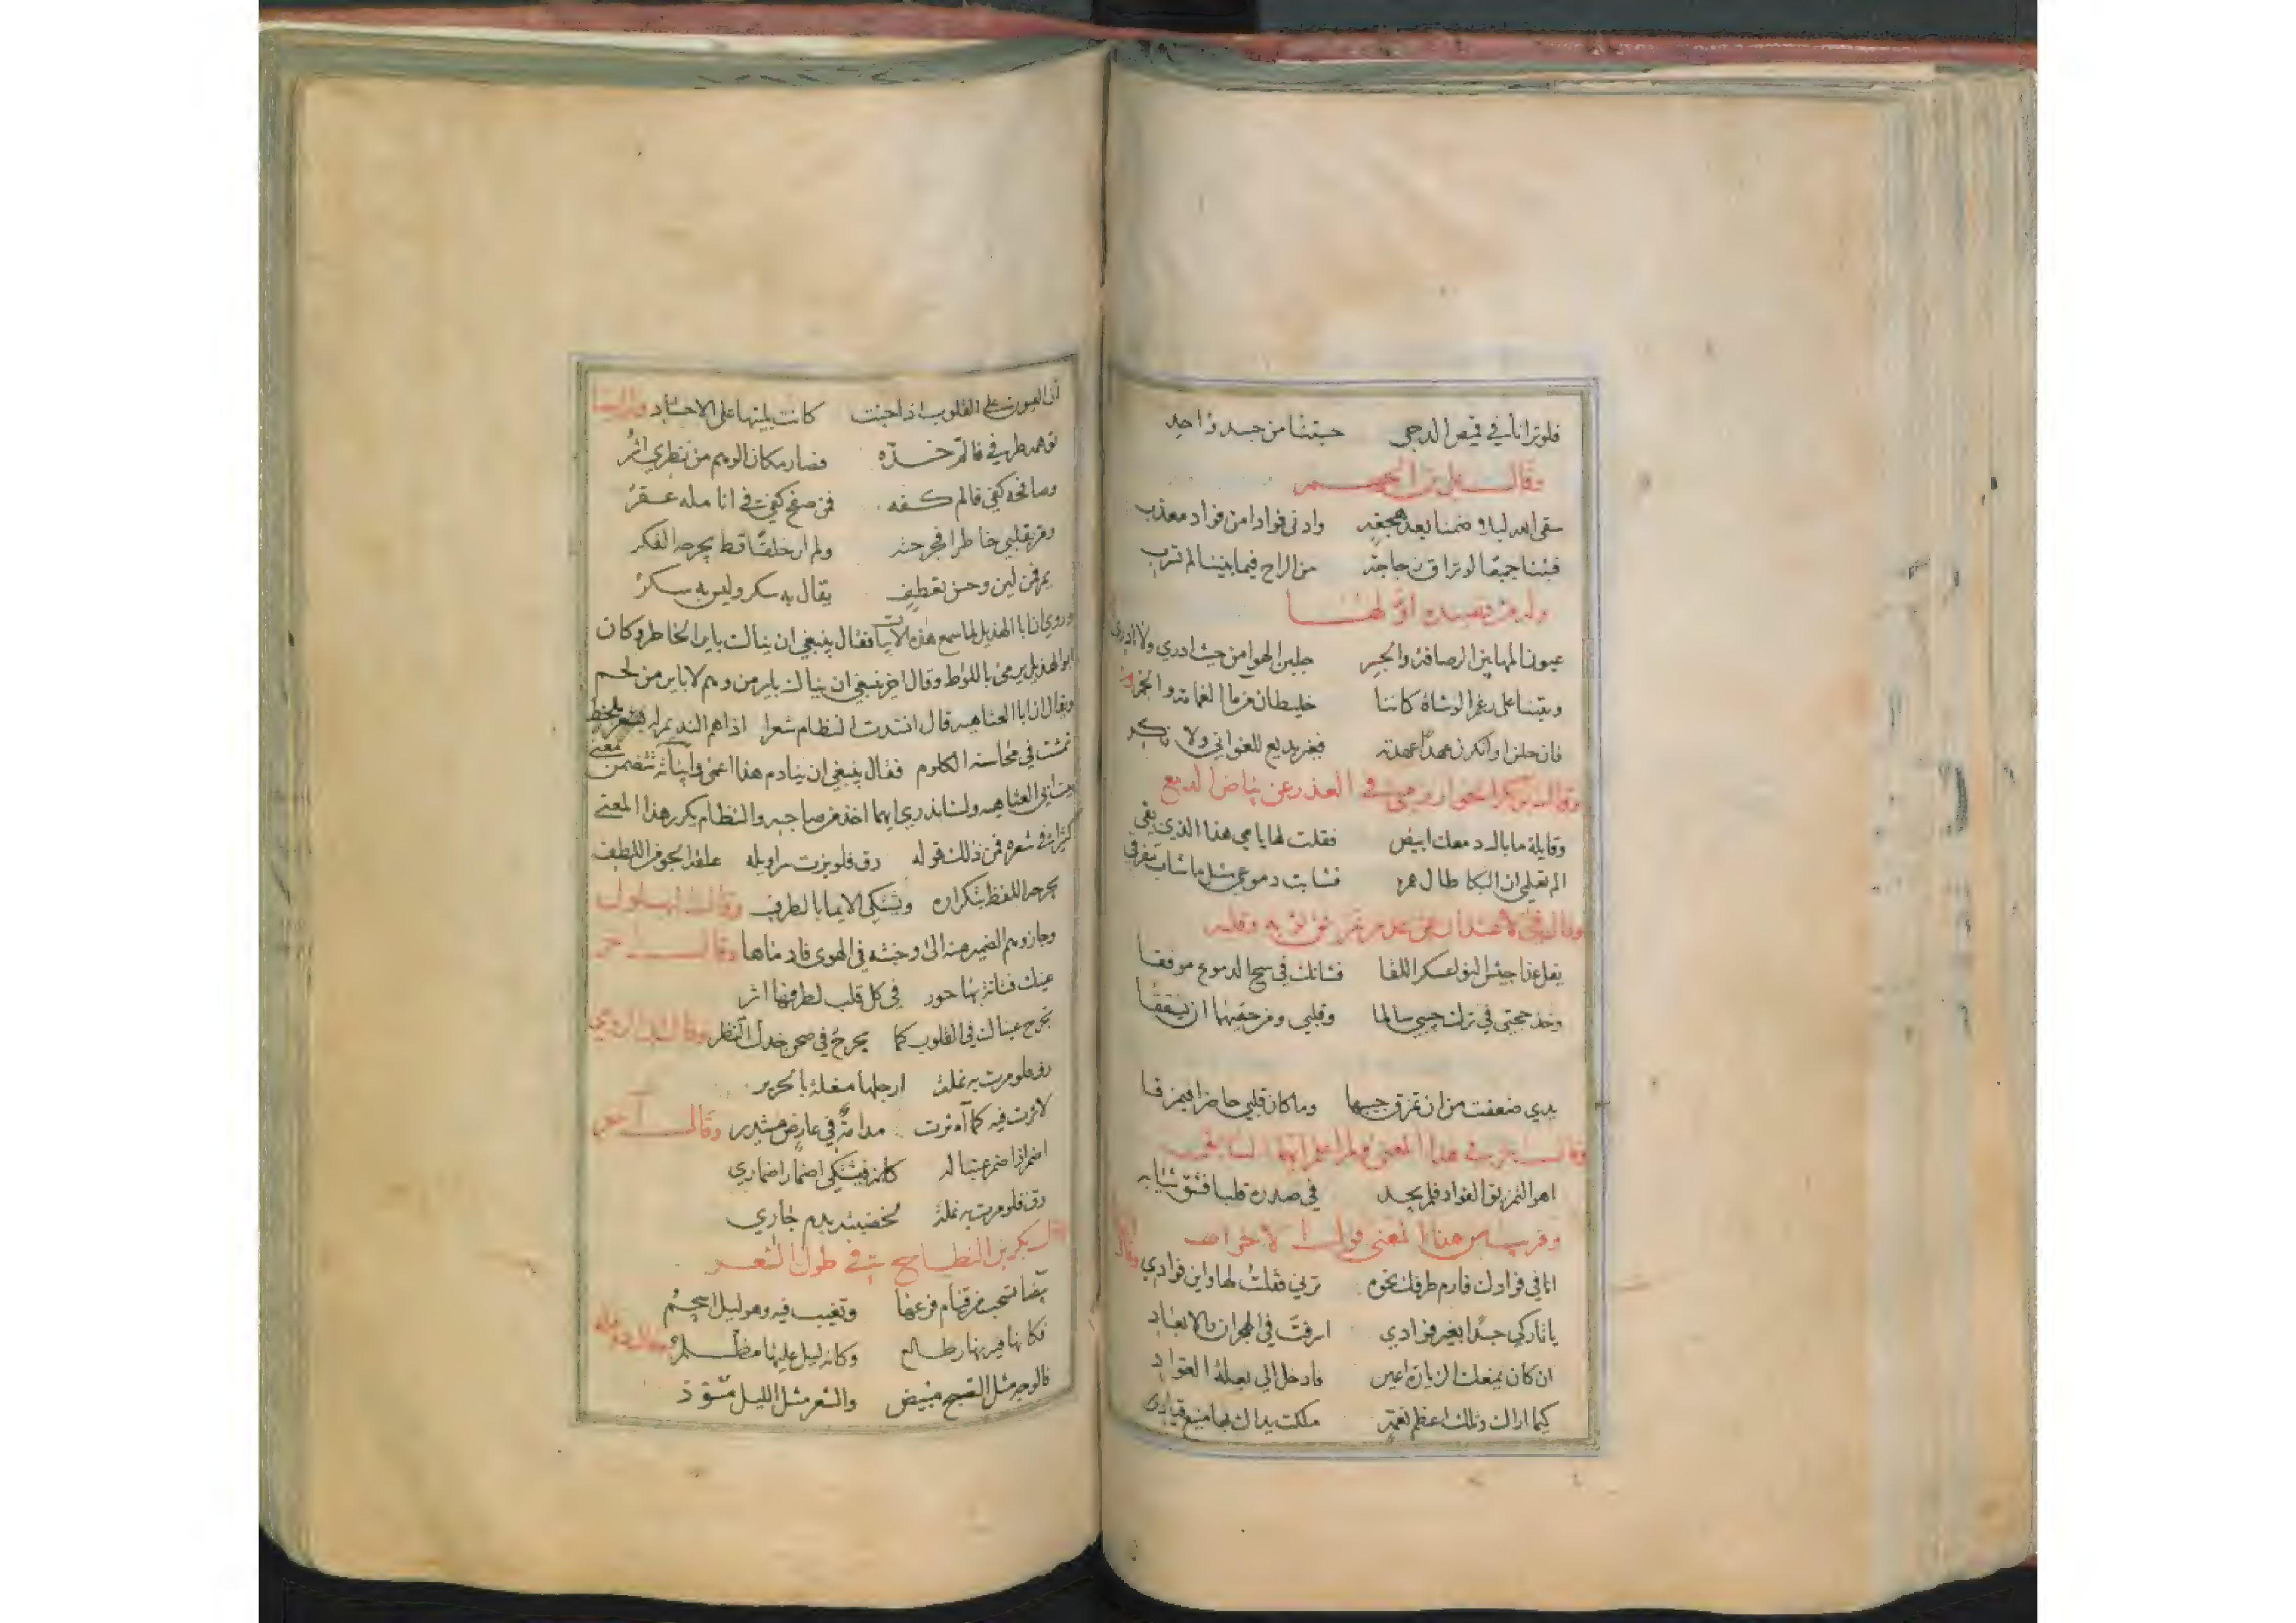 فلوترانا في قميص الدجى حسبتنا من جسد واحد
وقال علي بن الجهم
سقى الله ليلا ضمنا بعد هجعة وادنى فوادا من فواد معذب
فبتنا جميعا لو تراق زجاجة من الراح فيما بيننا لم تسرب
وله من قصيده اولها
عيون المها بين الرصافة والجسر جلبن الهوا من حيث ادري ولا ادري
وبتنا على رغم الوشاة كاننا خليطان من ما الغمامة والخمر
فان حلن او انكرن عهدا عهدته فغير بديع للغواني ولا نكر
وقال بكر الخوارزمي في العذر عن بياض الدمع
وقايلة ما بال دمعك ابيض فقلت لها يا مي هذا الذي بقي
الم تعلمي ان البكا طال عمره فشابت دموعي مثل ما شاب مفرقي
وقال في الاعتذار عن عدم تمزيق ثوبه وقلبه
يقل غدا جيش النوى عسكر اللقا فشانك في سح الدموع موفقا
وخذ حجتي في ترك جيبي سالما وقلبي ومن حقيهما ان يشققا
يدي ضعفت من ان تمزق جيبها وما كان قلبي حاضرا فيمزقا
وقال في هذا المعنى ولم اعلم ايهما السابق
اهوا لتمزيق الفواد فلم يجد في صدره قلبا فشق ثيابه
وقريب من هذا المعنى قول الاخر
انا في فوادك فارم طرفك نحوه ترني فقلت لها واين فوادي وقال
يا تاركي جسدا بغير فوادي اسرفت في الهجران والابعاد
ان كان يمنعك الزيارة اعين فادخل الي بعلة العواد
كيما اراك وتلك اعظم نعمة ملكت يداك بها منيع قيادي
ان العيون على القلوب اذا جنت كانت بليتها على الاجساد
توهمه طرفي فالم خده فصار مكان الوهم من نظري اثر
وصافحه كفي فالم كفه فمن صفح كفي في انامله عقر
ومر بقلبي خاطرا فجرحته ولم ار خلقا قط يجرحه الفكر
يمر فمن لين وحسن تعطف يقال به سكر وليس به سكر
وروي ان ابا الهذيل لما سمع هذه الابيات فقال ينبغي ان يناك باير الخاطر وكان
ابو الهذيل يرمى باللواط وقال اخر ينبغي ان يناك باير من وهم لا باير من لحم
ويقال ان ابا العتاهيه قال انشدت النظام شعرا اذا هم النديم له بلحظ
تمشت في محاسنه الكلوم فقال ينبغي ان ينادم هذا اعمى وابياته تتضمن معنى
بيت ابي العتاهيه ولسنا ندري ايهما اخذ من صاحبه والنظام يكرر هذا المعنى
كثيرا في شعره فمن ذلك قوله رق فلو بزت سراويله علقه الجو من اللطف
يجرحه اللفظ بتكراره ويشتكي الايما بالطرف وقال
وجاز وهم الضمير منه الى وجنته في الهوى فادماها وقال اخر
عينك فتانة بها حور في كل قلب لطرفها اثر
تجرح عيناك في القلوب كما يجرح في صحن خدك النظر
رق فلو مرت به نملة ارجلها منعلة بالحرير
لاثرت فيه كما اثرت مدامة في عارض مستدير وقال آخر
اضمر اذا ضمر عتبا له كانه فيشتكي اضمار اضماري
رق فلو مرت به نملة لخضبته بدم جاري
بكر بن النطاح في طول الشعر
بيضا تسحب من قيام فرعها وتغيب فيه وهو ليل اسحم
فكانها فيه نهار طالع وكانه ليل عليها مظلم
فالوجه مثل الصبح مبيض والشعر مثل الليل مسود